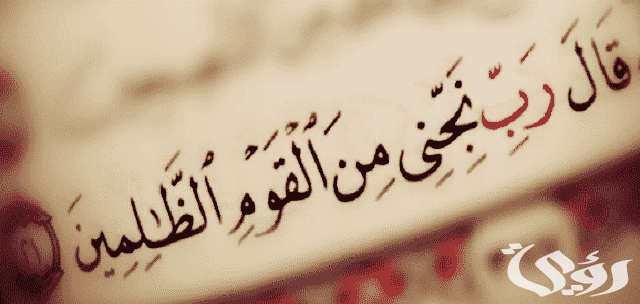 قَالَ رَبِّ نَجِّنِى مِنَ ٱلْقَوْمِ ٱلظَّـٰلِمِينَ ٢١
رؤية